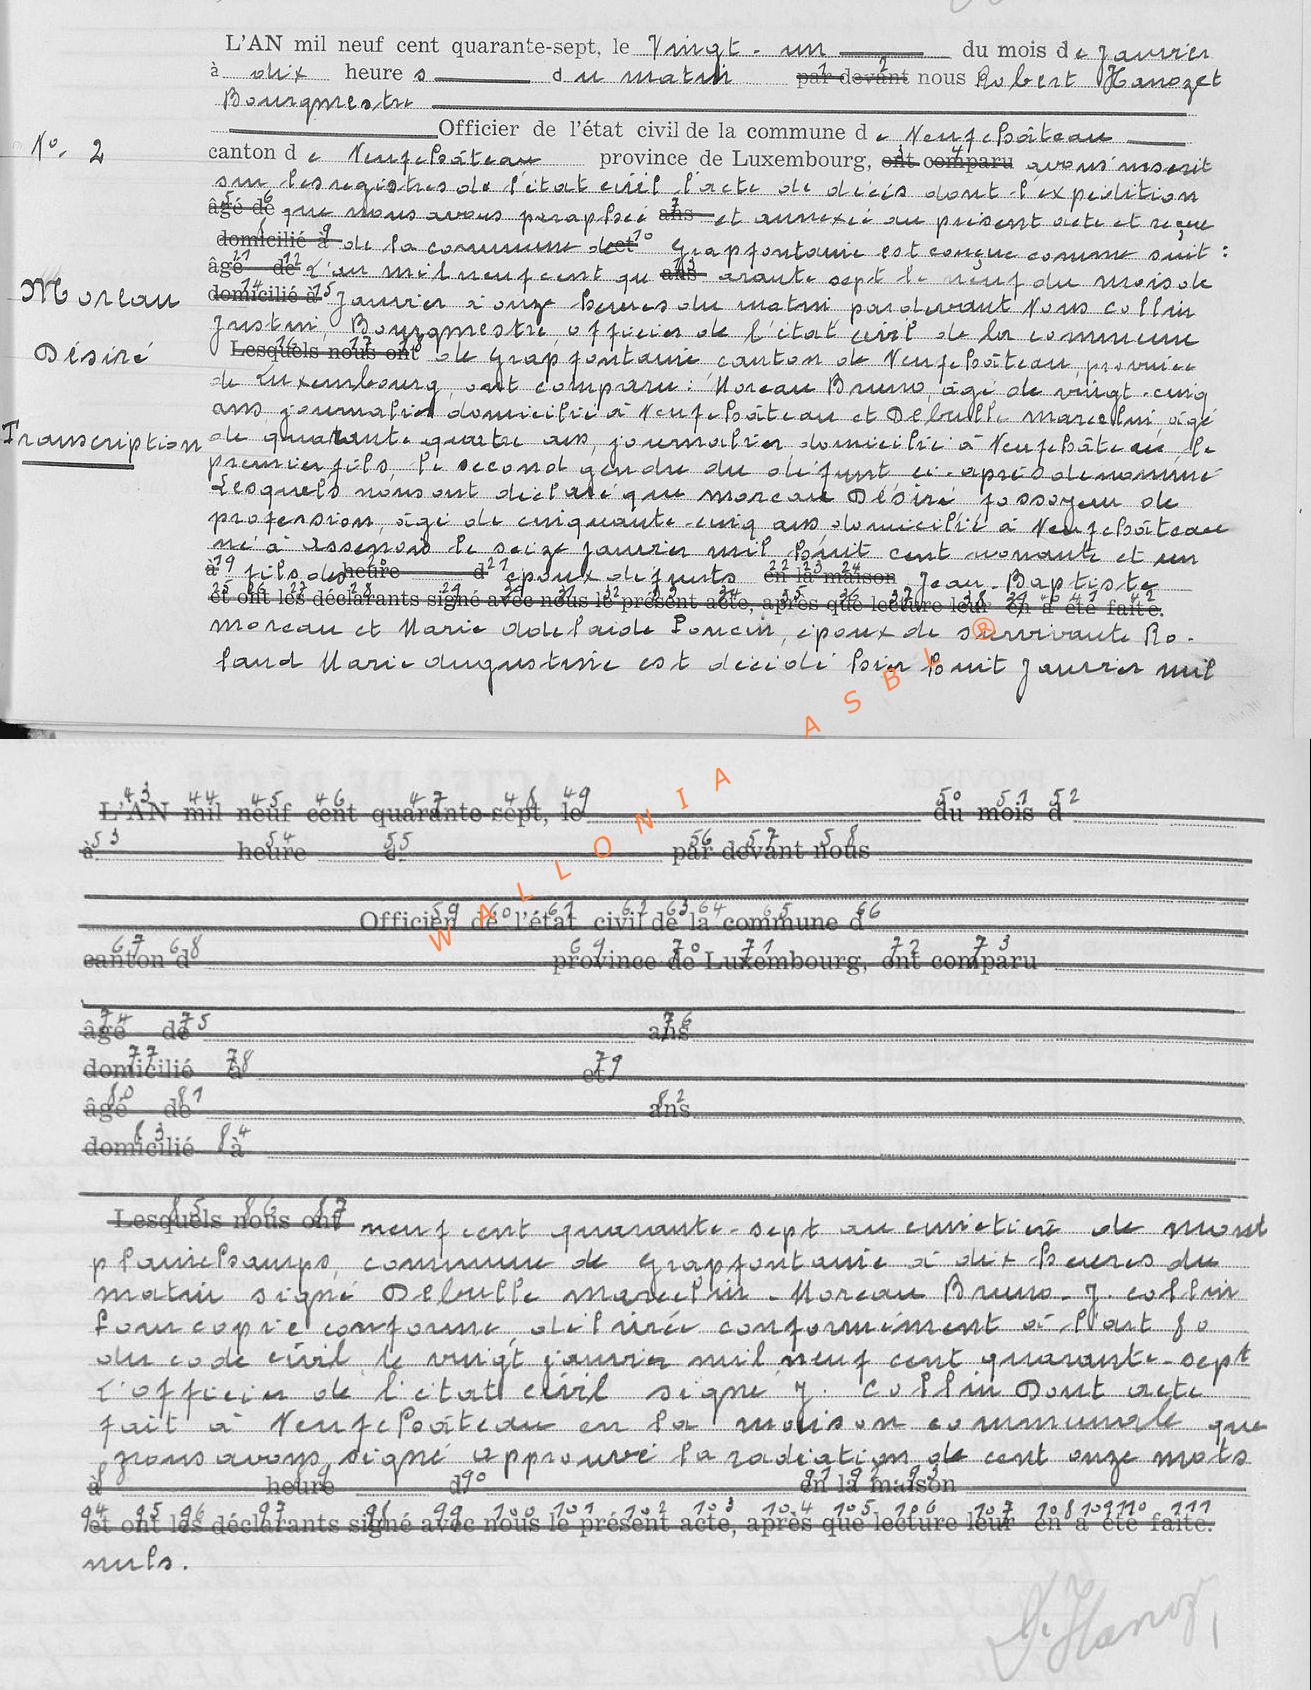 L'AN mil neuf cent quarante-sept, le Vingt-un du mois de Janvier
à dix heures du matin par devant nous Robert Hanozet
Bourgmestre
Officier de l'état civil de la commune de Neufchâteau
N° 2
canton de Neufchâteau province de Luxembourg, ont comparu avons inscrit
sur les registres de l'état civil l'acte de décès dont l'expédition
âgé de que nous avons paraphée ans et annexée au présent acte et reçue
domicilié à de la commune de et Grapfontaine est conçue comme suit :
âgé de L'an mil neuf cent qu ans arante sept le neuf du mois de
Moreau
domicilié à Janvier à onze heures du matin par devant Nous Collin
Justin, Bourgmestre, officier de l'état civil de la commune
Désiré
Lesquels nous ont de Grapfontaine canton de Neufchâteau, province
de Luxembourg, ont comparu : Moreau Bruno, âgé de vingt-cinq
ans journalier domicilié à Neufchâteau et Debulle Marcelin, âgé
Transcription
de quarante quatre ans, journalier domicilié à Neufchâteau le
premier fils le second gendre du défunt ci-après dénommé
Lesquels nous ont déclaré que Moreau Désiré fossoyeur de
profession, âgé de cinquante-cinq ans domicilié à Neufchâteau
né à Assenois le seize janvier mil huit cent nonante et un
à fils des heure d époux défunts en la maison Jean-Baptiste
et ont les déclarants signé avec nous le présent acte, après que lecture leur en a été faite.
Moreau et Marie Adelaïde Poncin, époux de survivante Ro-
land Marie Augustine est décédé hier huit Janvier mil
WALLONIA ASBL ®
L'AN mil neuf cent quarante-sept, le du mois d
à heure d par devant nous
Officier de l'état civil de la commune d
canton d province de Luxembourg, ont comparu
âgé de ans
domicilié à et
âgé de ans
domicilié à
Lesquels nous ont neuf cent quarante-sept au cimetière de Mont
plainchamps, commune de Grapfontaine à dix heures du
matin signé Debulle Marcelin - Moreau Bruno - J. Collin
Pour copie conforme, délivrée conformément à l'art 80
du code civil le vingt janvier mil neuf cent quarante-sept
L'officier de l'état civil signé J. Collin Dont acte
fait à Neufchâteau en la maison communale que
nous avons signé approuvé la radiation de cent onze mots
à heure d en la maison
et ont les déclarants signé avec nous le présent acte, après que lecture leur en a été faite.
nuls.